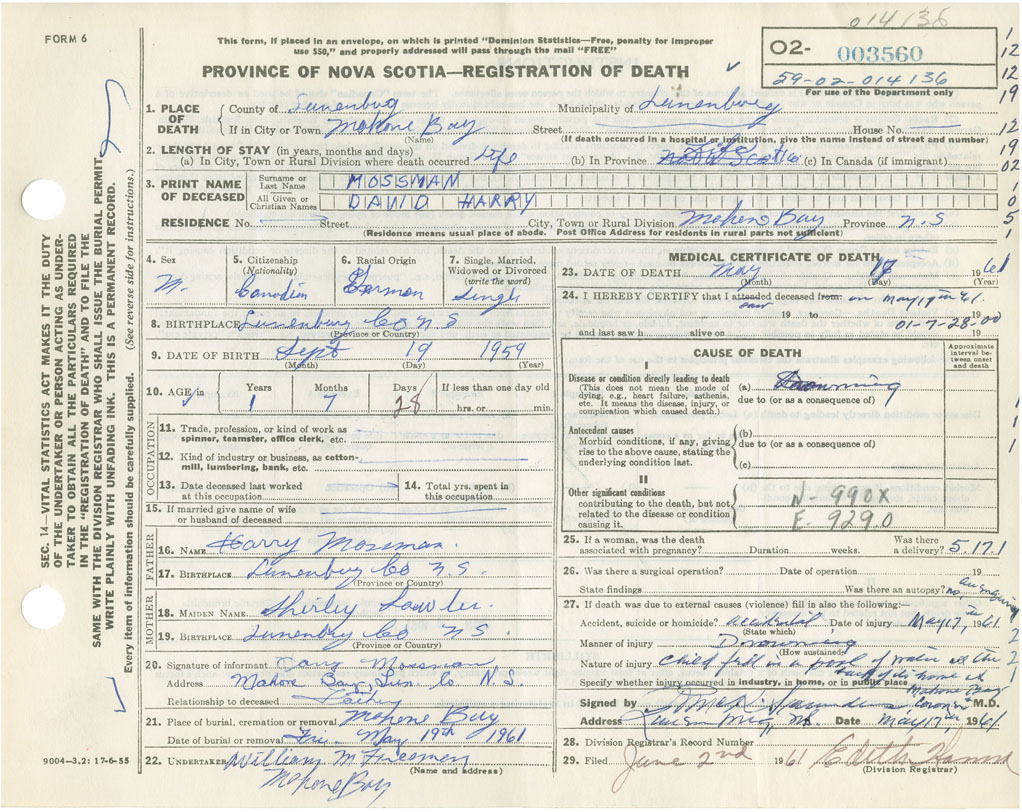 014136
FORM 6
This form, if placed in an envelope, on which is printed "Dominion Statistics—Free, penalty for improper
use $50," and properly addressed will pass through the mail "FREE"
PROVINCE OF NOVA SCOTIA—REGISTRATION OF DEATH
O2- 003560
59-02-014136
For use of the Department only
1. PLACE OF DEATH County of Lunenburg Municipality of Lunenburg
If in City or Town Mahone Bay Street House No.
(Name) (If death occurred in a hospital or institution, give the name instead of street and number)
2. LENGTH OF STAY (in years, months and days)
(a) In City, Town or Rural Division where death occurred life (b) In Province Life Nova Scotia (c) In Canada (if immigrant)
3. PRINT NAME OF DECEASED
Surname or Last Name MOSSMAN
All Given or Christian Names DAVID HARRY
RESIDENCE No. Street City, Town or Rural Division Mahone Bay Province N.S
(Residence means usual place of abode. Post Office Address for residents in rural parts not sufficient)
4. Sex M.
5. Citizenship (Nationality) Canadian
6. Racial Origin German
7. Single, Married, Widowed or Divorced (write the word) Single
8. BIRTHPLACE Lunenburg Co N S
(Province or Country)
9. DATE OF BIRTH Sept 19 1959
(Month) (Day) (Year)
10. AGE in Years 1 Months 7 Days 28 If less than one day old hrs. or min.
OCCUPATION
11. Trade, profession, or kind of work as spinner, teamster, office clerk, etc.
12. Kind of industry or business, as cotton-mill, lumbering, bank, etc.
13. Date deceased last worked at this occupation
14. Total yrs. spent in this occupation
15. If married give name of wife or husband of deceased
FATHER
16. NAME Harry Mossman.
17. BIRTHPLACE Lunenburg Co N.S.
(Province or Country)
MOTHER
18. MAIDEN NAME Shirley
19. BIRTHPLACE Lunenburg Co N S.
(Province or Country)
20. Signature of informant Mossman
Address Mahone Bay, Lun. Co N.S.
Relationship to deceased Father
21. Place of burial, cremation or removal Mahone Bay
Date of burial or removal Fri. May 19th 1961
22. UNDERTAKER William M Freeman
(Name and address)
Mahone Bay
9004—3.2: 17-6-55
MEDICAL CERTIFICATE OF DEATH
23. DATE OF DEATH May 17 1961
(Month) (Day) (Year)
24. I HEREBY CERTIFY that I attended deceased from: saw on May 17th 61.
19 to 19
01-7-28-00
and last saw h alive on 19
CAUSE OF DEATH
Approximate interval between onset and death
I
Disease or condition directly leading to death
(This does not mean the mode of dying, e.g., heart failure, asthenia, etc. It means the disease, injury, or complication which caused death.)
(a) Drowning
due to (or as a consequence of)
Antecedent causes
Morbid conditions, if any, giving rise to the above cause, stating the underlying condition last.
(b)
due to (or as a consequence of)
(c)
II
Other significant conditions
contributing to the death, but not related to the disease or condition causing it.
N- 990X
E- 929.0
25. If a woman, was the death associated with pregnancy? Duration weeks. Was there a delivery? 5.17.1
26. Was there a surgical operation? Date of operation 19
State findings Was there an autopsy? no.
27. If death was due to external causes (violence) fill in also the following:—
Accident, suicide or homicide? accidental Date of injury May 17, 1961.
(State which)
Manner of injury Drowning
(How sustained)
Nature of injury child fell in a pool of water at the
back of his home at
Specify whether injury occurred in industry, in home, or in public place Mahone Bay
Signed by Coroner M.D.
Address Date May 17th 1961.
28. Division Registrar's Record Number
29. Filed June 2nd 1961 Edith
(Division Registrar)
SEC. 14—VITAL STATISTICS ACT MAKES IT THE DUTY
OF THE UNDERTAKER OR PERSON ACTING AS UNDER-
TAKER TO OBTAIN ALL THE PARTICULARS REQUIRED
IN THE "REGISTRATION OF DEATH" AND TO FILE THE
SAME WITH THE DIVISION REGISTRAR WHO SHALL ISSUE THE BURIAL PERMIT
WRITE PLAINLY WITH UNFADING INK. THIS IS A PERMANENT RECORD.
Every item of information should be carefully supplied. (See reverse side for instructions.)
1
12
12
19
12
19
02
1
0
5
1
1
1
1
2
2
1